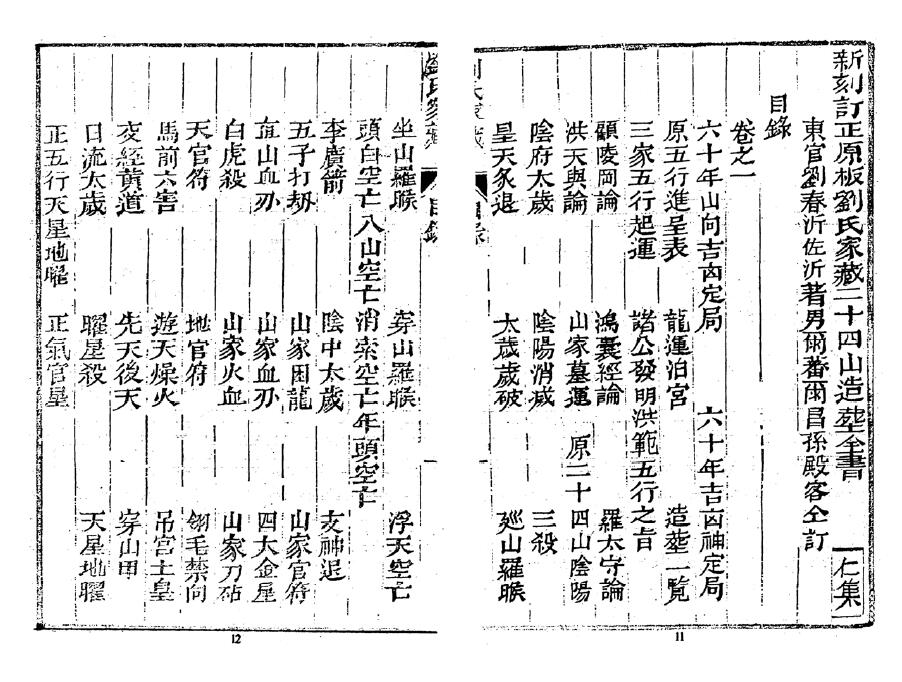 新刻訂正原板劉氏家藏二十四山造塟全書 仁集
東官劉春沂佐沂著男爾蕃爾昌孫殿客仝訂
目錄
卷之一
六十年山向吉凶定局 六十年吉凶神定局
原五行進呈表 龍運泊宮 造塟一覧
三家五行起運 諸公發明洪範五行之旨
顧陵岡論 鴻囊經論 羅太守論
洪天與論 山家墓運 原二十四山陰陽
陰府太歲 陰陽消滅 三殺
皇天炙退 太歲歲破 廵山羅睺
目錄
11
坐山羅睺 穿山羅睺 浮天空亡
頭白空亡八山空亡消索空亡年頭空亡
李廣箭 陰中太歲 支神退
五子打劫 山家困龍 山家官符
直山血刃 山家血刃 四大金星
白虎殺 山家火血 山家刀砧
天官符 地官符 翎毛禁向
馬前六害 遊天燥火 吊宮土皇
支經黃道 先天後天 穿山甲
日流太歲 曜星殺 天星地曜
正五行天星地曜 正氣官星
12